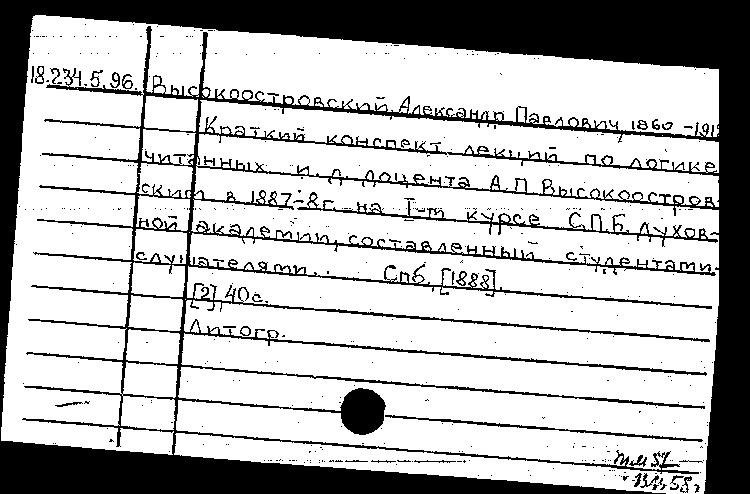 18.234.5.96. Высокоостровский, Александр Павлович, 1860-1912
Краткий конспект лекций по логике,
читанных и. д. доцента А.П. Высокоостров-
ским в 1887-8 г. на I-м курсе С.П.Б. Духов-
ной академии, составленный студентами-
слушателями. . Спб., [1888].
[2], 40 с.
Литогр.